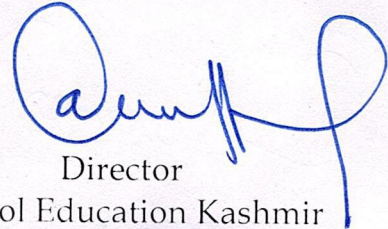 Director
ol Education Kashmir